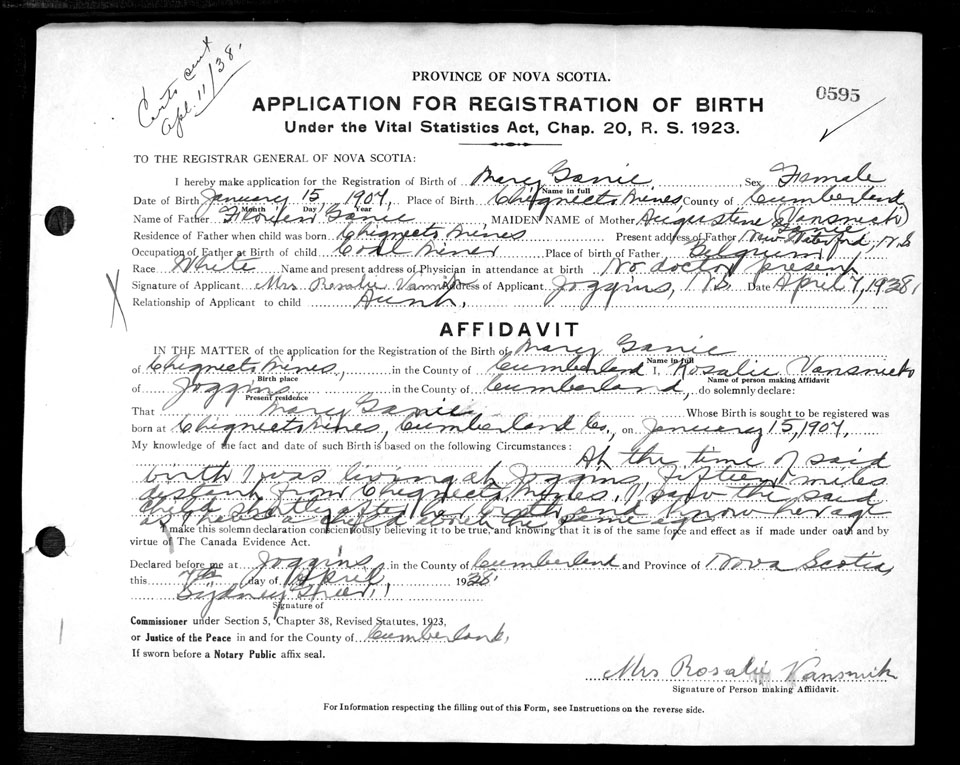 Certs sent
Apl. 11/38.
PROVINCE OF NOVA SCOTIA.
0595
APPLICATION FOR REGISTRATION OF BIRTH
Under the Vital Statistics Act, Chap. 20, R. S. 1923.
TO THE REGISTRAR GENERAL OF NOVA SCOTIA:
I hereby make application for the Registration of Birth of Mary Ganie Sex Female
Name in full
Date of Birth January 15, 1907, Place of Birth Chignecto Mines County of Cumberland
Month Day Year
Name of Father Ganie MAIDEN NAME of Mother Augustene (Vansmick)
Ganie
Residence of Father when child was born Chignecto Mines Present address of Father New Waterford, N.S
Occupation of Father at Birth of child Coal Miner Place of birth of Father Belgium
Race White Name and present address of Physician in attendance at birth No doctor present
Signature of Applicant Mrs Rosalie Vansmick Address of Applicant Joggins, N.S. Date April 7, 1938,
Relationship of Applicant to child Aunt,
AFFIDAVIT
IN THE MATTER of the application for the Registration of the Birth of Mary Ganie
Name in full
of Chignecto Mines, in the County of Cumberland I, Rosalie Vansmick
Birth place Name of person making Affidavit
of Joggins in the County of Cumberland, do solemnly declare:
Present residence
That Mary Ganie Whose Birth is sought to be registered was
born at Chignecto Mines, Cumberland Co., on January 15, 1907.
My knowledge of the fact and date of such Birth is based on the following Circumstances: At the time of said
birth I was living at Joggins, fifteen miles
distant from Chignecto Mines. I saw the said
child shortly after her birth and know her age
as I have a child about the same age.
I make this solemn declaration conscientiously believing it to be true, and knowing that it is of the same force and effect as if made under oath and by
virtue of The Canada Evidence Act.
Declared before me at Joggins, in the County of Cumberland and Province of Nova Scotia,
this 7th day of April, 1938.
Sydney
Signature of
Commissioner under Section 5, Chapter 38, Revised Statutes, 1923,
or Justice of the Peace in and for the County of Cumberland,
If sworn before a Notary Public affix seal.
Mrs Rosalie Vansmick
Signature of Person making Affidavit.
For Information respecting the filling out of this Form, see Instructions on the reverse side.